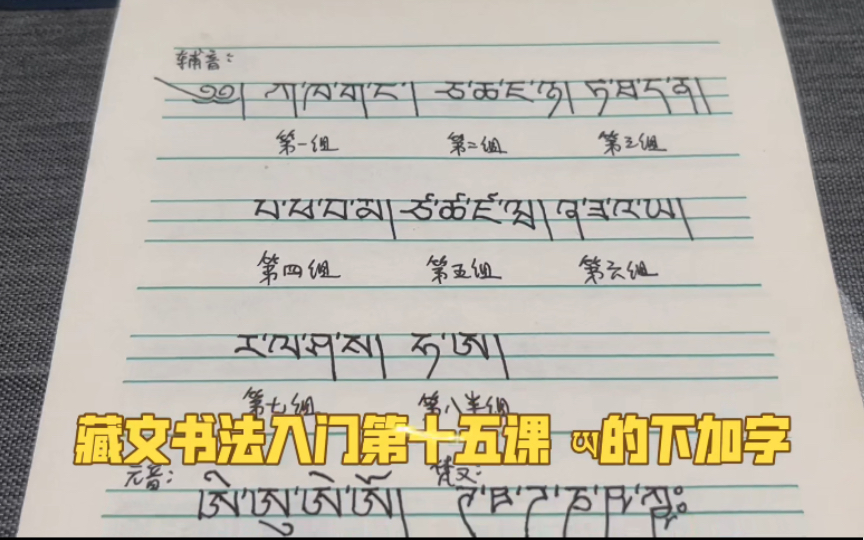 辅音：
༄༅། ཀ་ཁ་ག་ང་། ཅ་ཆ་ཇ་ཉ། ཏ་ཐ་ད་ན།
第一组 第二组 第三组
པ་ཕ་བ་མ། ཙ་ཚ་ཛ་ཝ། ཞ་ཟ་འ་ཡ།
第四组 第五组 第六组
ར་ལ་ཤ་ས། ཧ་ཨ།
第七组 第八半组
藏文书法入门第十五课 ཡ的下加字
元音： 梵文：
ཨི་ཨུ་ཨེ་ཨོ། ཊ་ཋ་ཌ་ཎ་ཥ་ཀྵཿ